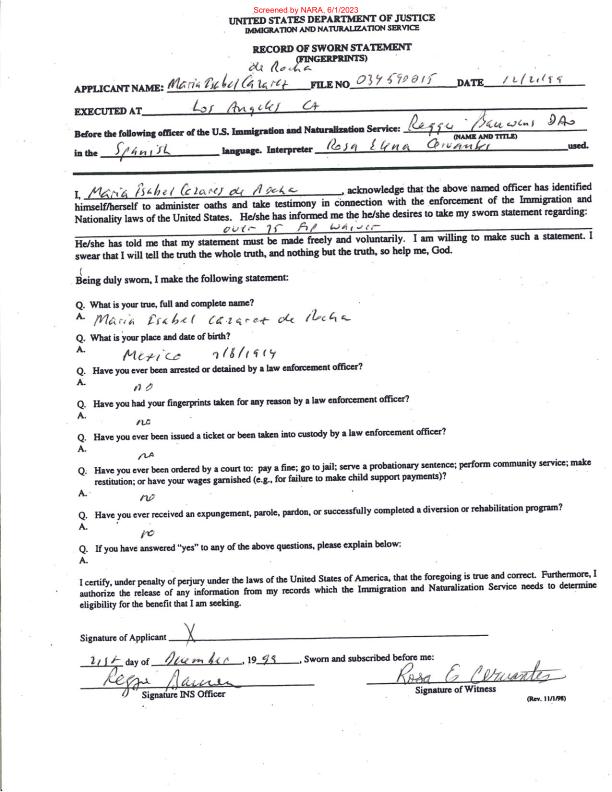 Screened by NARA, 6/1/2023
UNITED STATES DEPARTMENT OF JUSTICE
IMMIGRATION AND NATURALIZATION SERVICE
RECORD OF SWORN STATEMENT
(FINGERPRINTS)
de Rocha
APPLICANT NAME: Maria Isabel Cazarez FILE NO 034590015 DATE 12/21/99
EXECUTED AT Los Angeles CA
Before the following officer of the U.S. Immigration and Naturalization Service: Reggie DAO
(NAME AND TITLE)
in the Spanish language. Interpreter Rosa Elena Cervantes used.
I, Maria Isabel Cezares de Rocha, acknowledge that the above named officer has identified
himself/herself to administer oaths and take testimony in connection with the enforcement of the Immigration and
Nationality laws of the United States. He/she has informed me the he/she desires to take my sworn statement regarding:
over 75 F/p waiver
He/she has told me that my statement must be made freely and voluntarily. I am willing to make such a statement. I
swear that I will tell the truth the whole truth, and nothing but the truth, so help me, God.
Being duly sworn, I make the following statement:
Q. What is your true, full and complete name?
A. Maria Isabel Cazarez de Rocha
Q. What is your place and date of birth?
A. Mexico 7/8/1914
Q. Have you ever been arrested or detained by a law enforcement officer?
A. no
Q. Have you had your fingerprints taken for any reason by a law enforcement officer?
A. no
Q. Have you ever been issued a ticket or been taken into custody by a law enforcement officer?
A. no
Q. Have you ever been ordered by a court to: pay a fine; go to jail; serve a probationary sentence; perform community service; make
restitution; or have your wages garnished (e.g., for failure to make child support payments)?
A. no
Q. Have you ever received an expungement, parole, pardon, or successfully completed a diversion or rehabilitation program?
A. no
Q. If you have answered "yes" to any of the above questions, please explain below:
A.
I certify, under penalty of perjury under the laws of the United States of America, that the foregoing is true and correct. Furthermore, I
authorize the release of any information from my records which the Immigration and Naturalization Service needs to determine
eligibility for the benefit that I am seeking.
Signature of Applicant X
21st day of December, 1999, Sworn and subscribed before me:
Reggie Rosa E Cervantes
Signature INS Officer Signature of Witness
(Rev. 11/1/98)